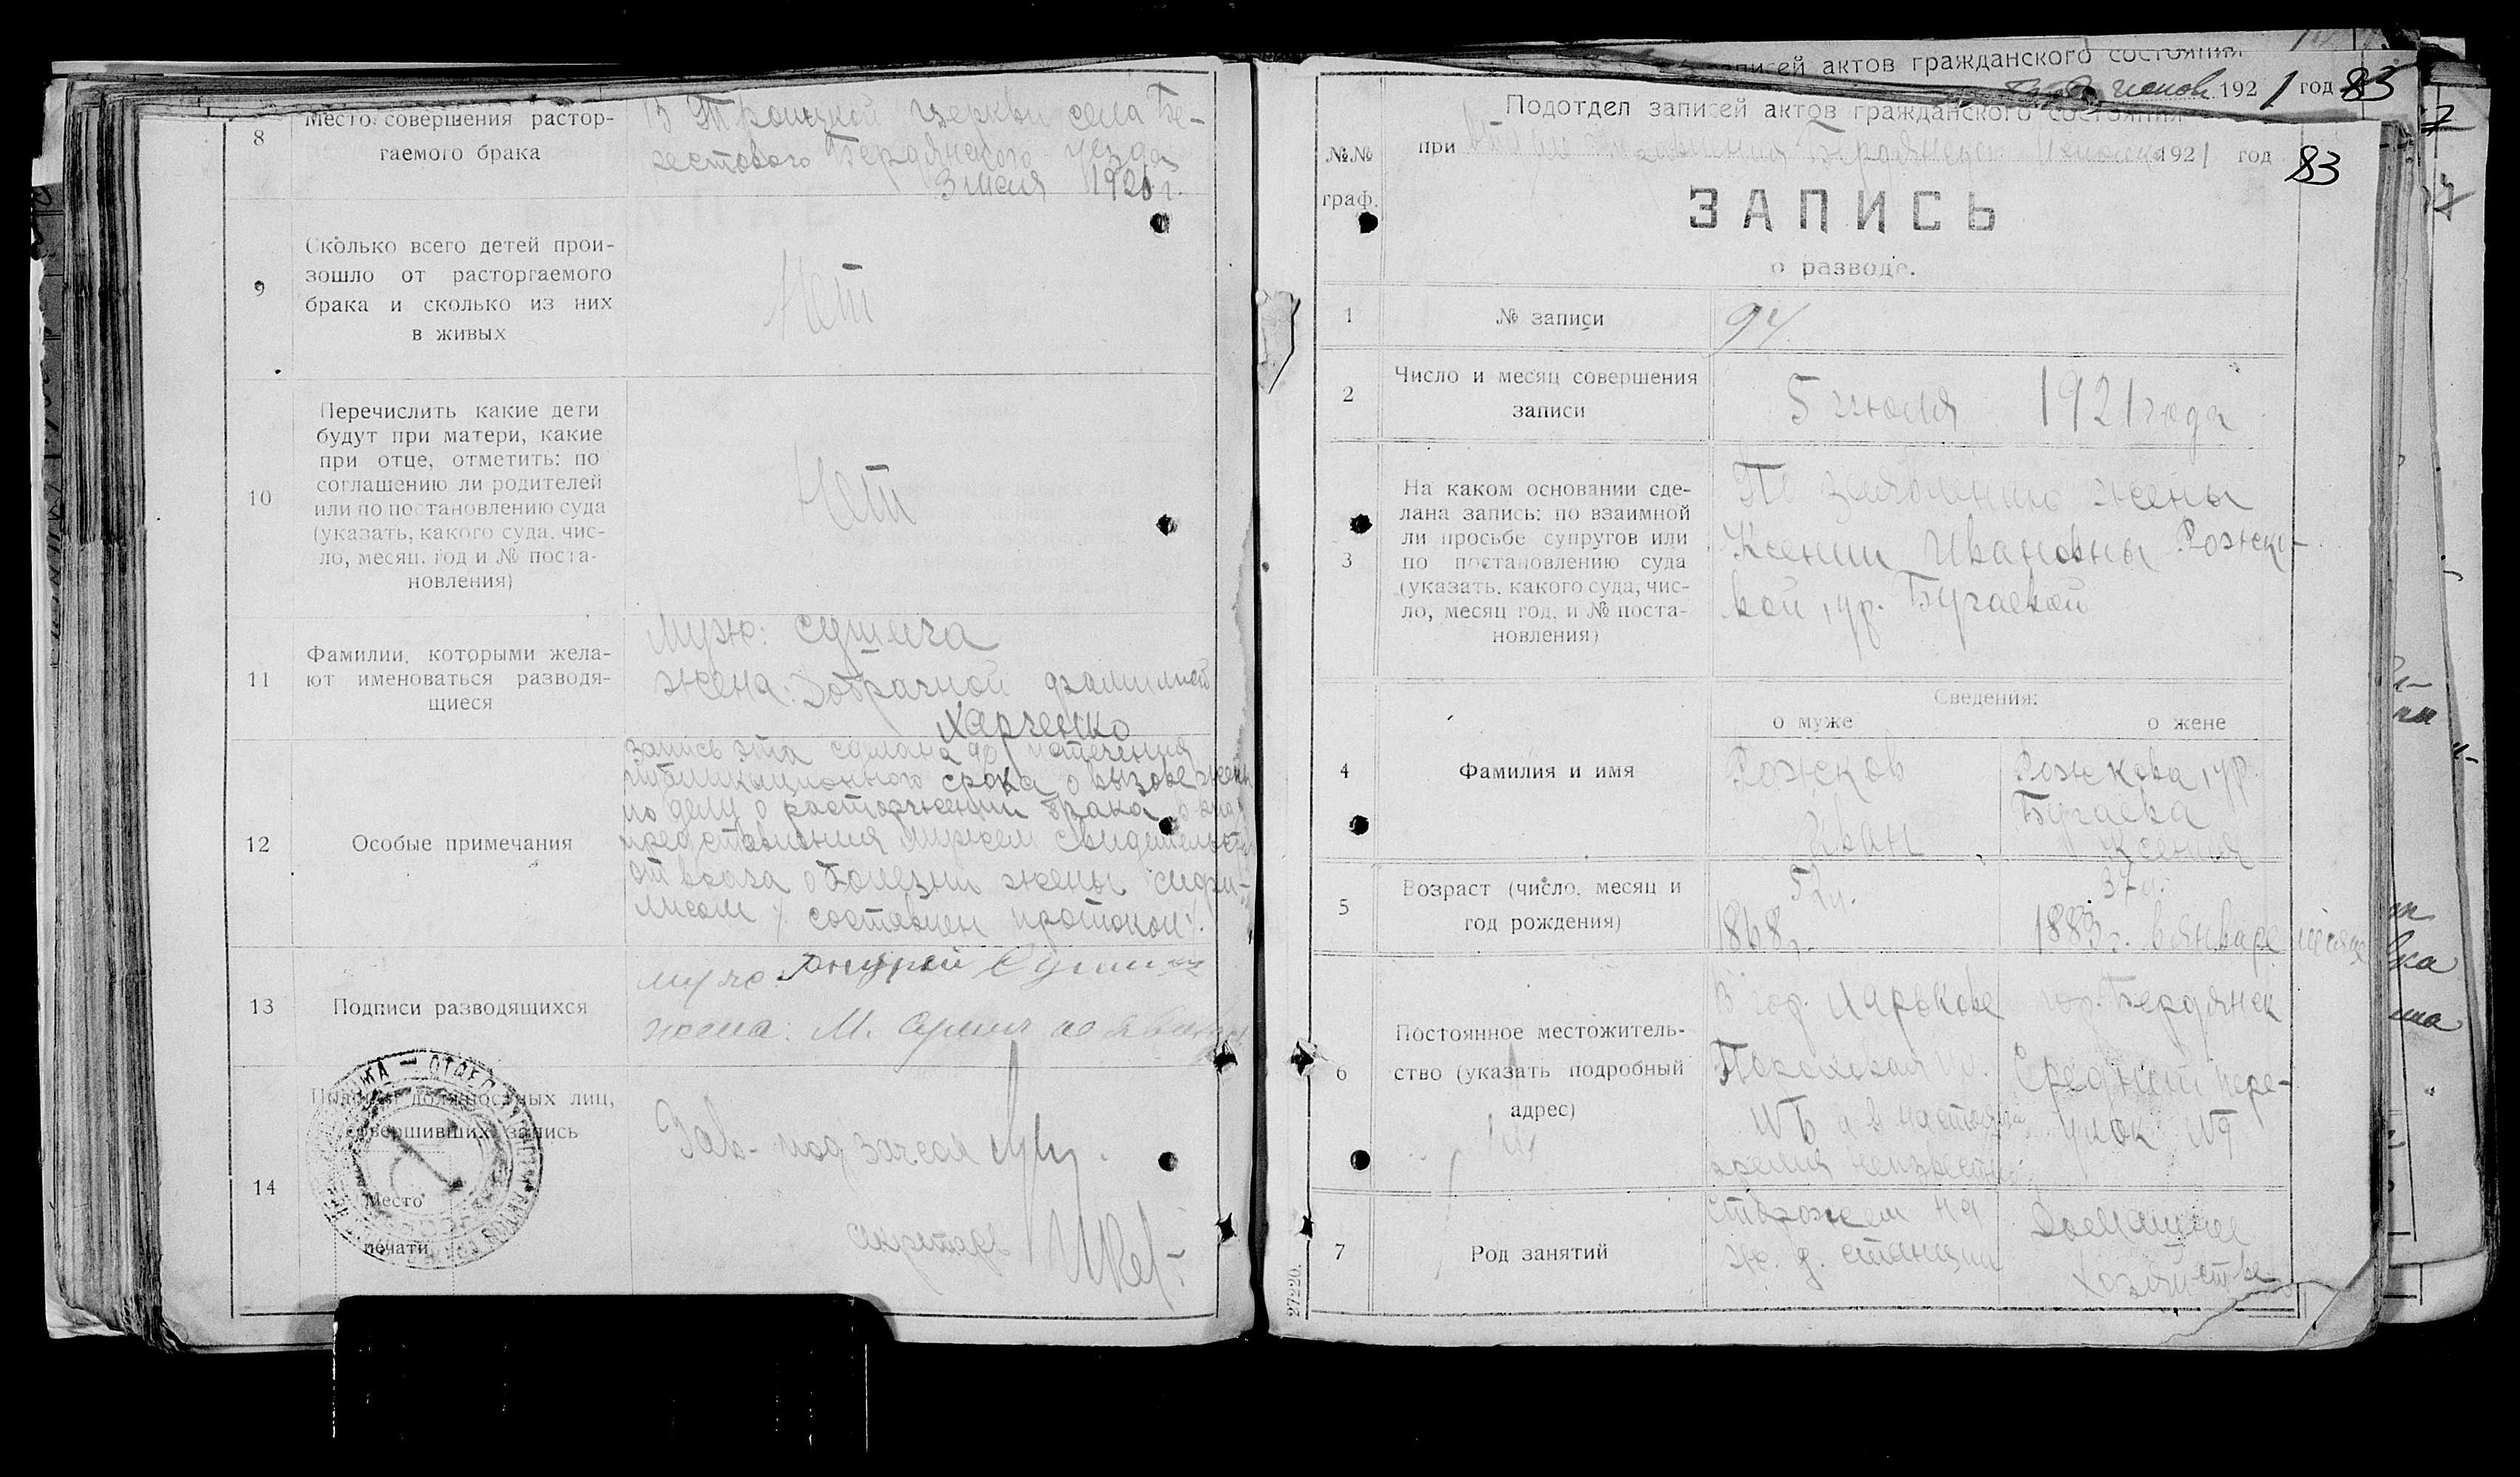 8
Место совершения растор-
гаемого брака
В Троицкой церкви села Бе-
рестового Бердянского уезда
3 мая 1920 г.
9
Сколько всего детей прои-
зошло от расторгаемого
брака и сколько из них
в живых
Нет
10
Перечислить какие дети
будут при матери, какие
при отце, отметить: по
соглашению ли родителей
или по постановлению суда
(указать, какого суда, чис-
ло, месяц, год и № поста-
новления)
Нет
11
Фамилии, которыми жела-
ют именоваться разводя-
щиеся
муж:
жена: добрачной фамилией
Харченко
12
Особые примечания
Запись эта сделана до истечения
публикационного срока о вызове жены
по делу о расторжении брака
представления мужем свидетельства
от врача о болезни жены сифи-
лисом /. составлен протокол /.
13
Подписи разводящихся
муж: Андрей
жена: М.
14
Подписи должностных лиц,
совершивших запись
Место
печати
Зав. подзагсом
Секретарь
записей актов гражданского состояния
192 1 год 83
Подотдел записей актов гражданского состояния
№№
граф.
при Бердянском 1921 год
83
ЗАПИСЬ
о разводе.
1
№ записи
94
2
Число и месяц совершения
записи
5 июля 1921 года
3
На каком основании сде-
лана запись: по взаимной
ли просьбе супругов или
по постановлению суда
(указать, какого суда, чис-
ло, месяц год, и № поста-
новления)
По заявлению жены
Ксении Ивановны Рожко-
вой, ур. Бугаевой
Сведения:
о муже
о жене
4
Фамилия и имя
Рожков
Иван
Рожкова, ур.
Бугаева
Ксения
5
Возраст (число, месяц и
год рождения)
52 л.
1868 г.
37 л.
1883 г. в январе месяце
6
Постоянное местожитель-
ство (указать подробный
адрес)
В гор. Харькове
а в настоящее
время неизвестно
гор. Бердянск
Средний пере-
улок №9
7
Род занятий
сторожем на
ж. д. станции
Домашнее
хозяйство
27220.